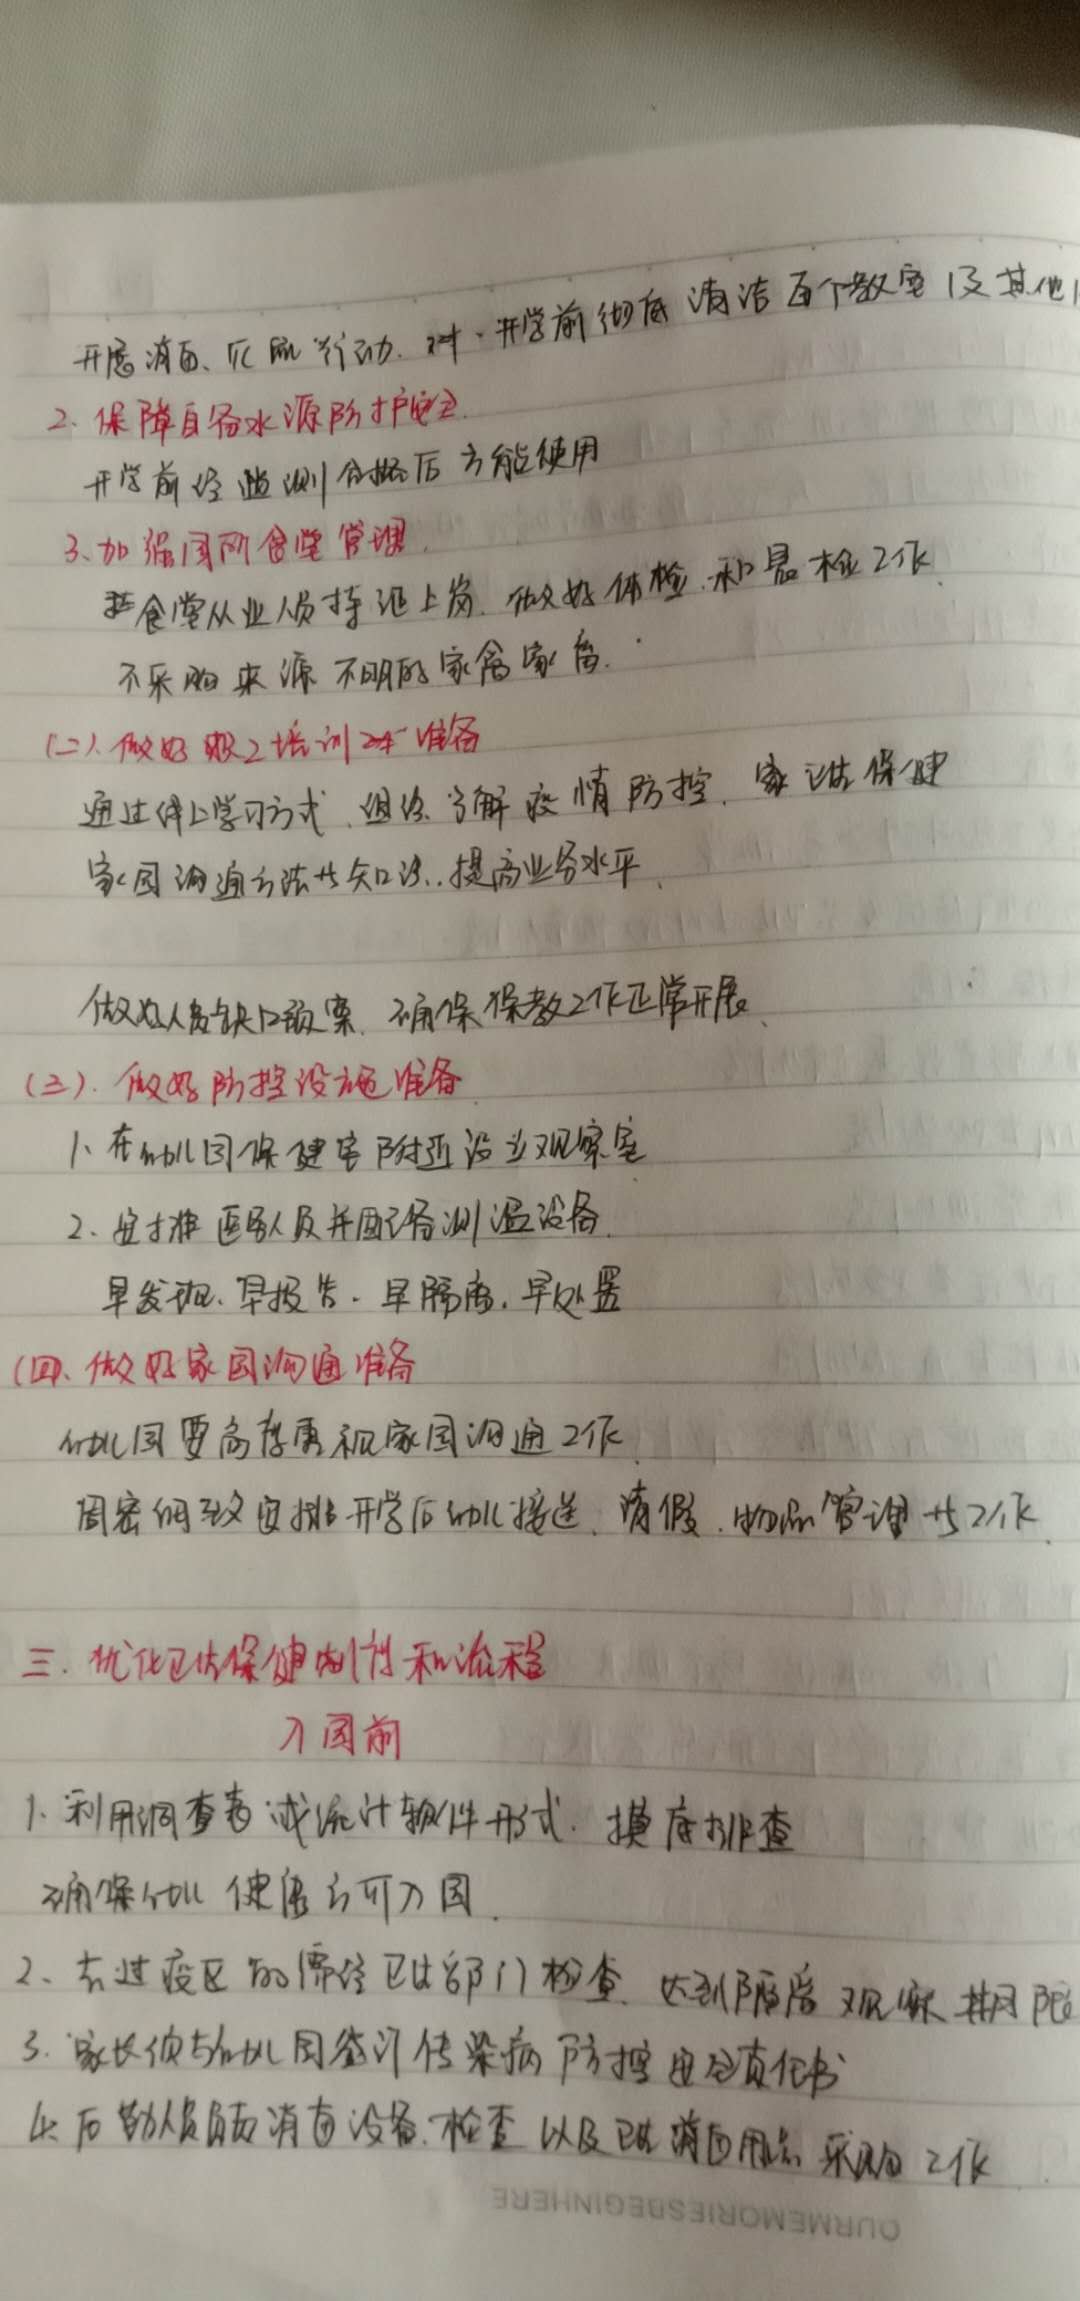 开展消毒、灭鼠行动. 对·开学前彻底清洁百个教室及其他
2. 保障自备水源防护安全.
开学前经监测合格后方能使用
3. 加强园所食堂管理.
食堂从业人员持证上岗. 做好体检.和晨检工作.
不采购来源不明的家禽家畜.
(二). 做好职工培训 准备
通过线上学习方式. 组织 了解疫情防控. 家 保健
家园沟通方法等知识.. 提高业务水平.
做好人员缺口预案. 确保保教工作正常开展.
(三). 做好防控设施准备
1、在幼儿园保健室附近设立观察室
2、安排医务人员并配备测温设备.
早发现、早报告. 早隔离. 早处置
(四、做好家园沟通准备
幼儿园要高度重视家园沟通工作.
周密细致安排开学后幼儿接送、请假. 物品管理等工作.
三. 优化卫生保健制度和流程
入园前
1. 利用调查表或统计软件形式. 摸底排查
确保幼儿健康方可入园.
2、去过疫区的需经卫生部门检查. 达到隔离观察期限
3. 家长须与幼儿园签订传染病防控安全责任书
4. 后勤人员负责消毒设备. 检查以及卫生消毒用品采购工作.
OURMEMORIESBEGINHERE